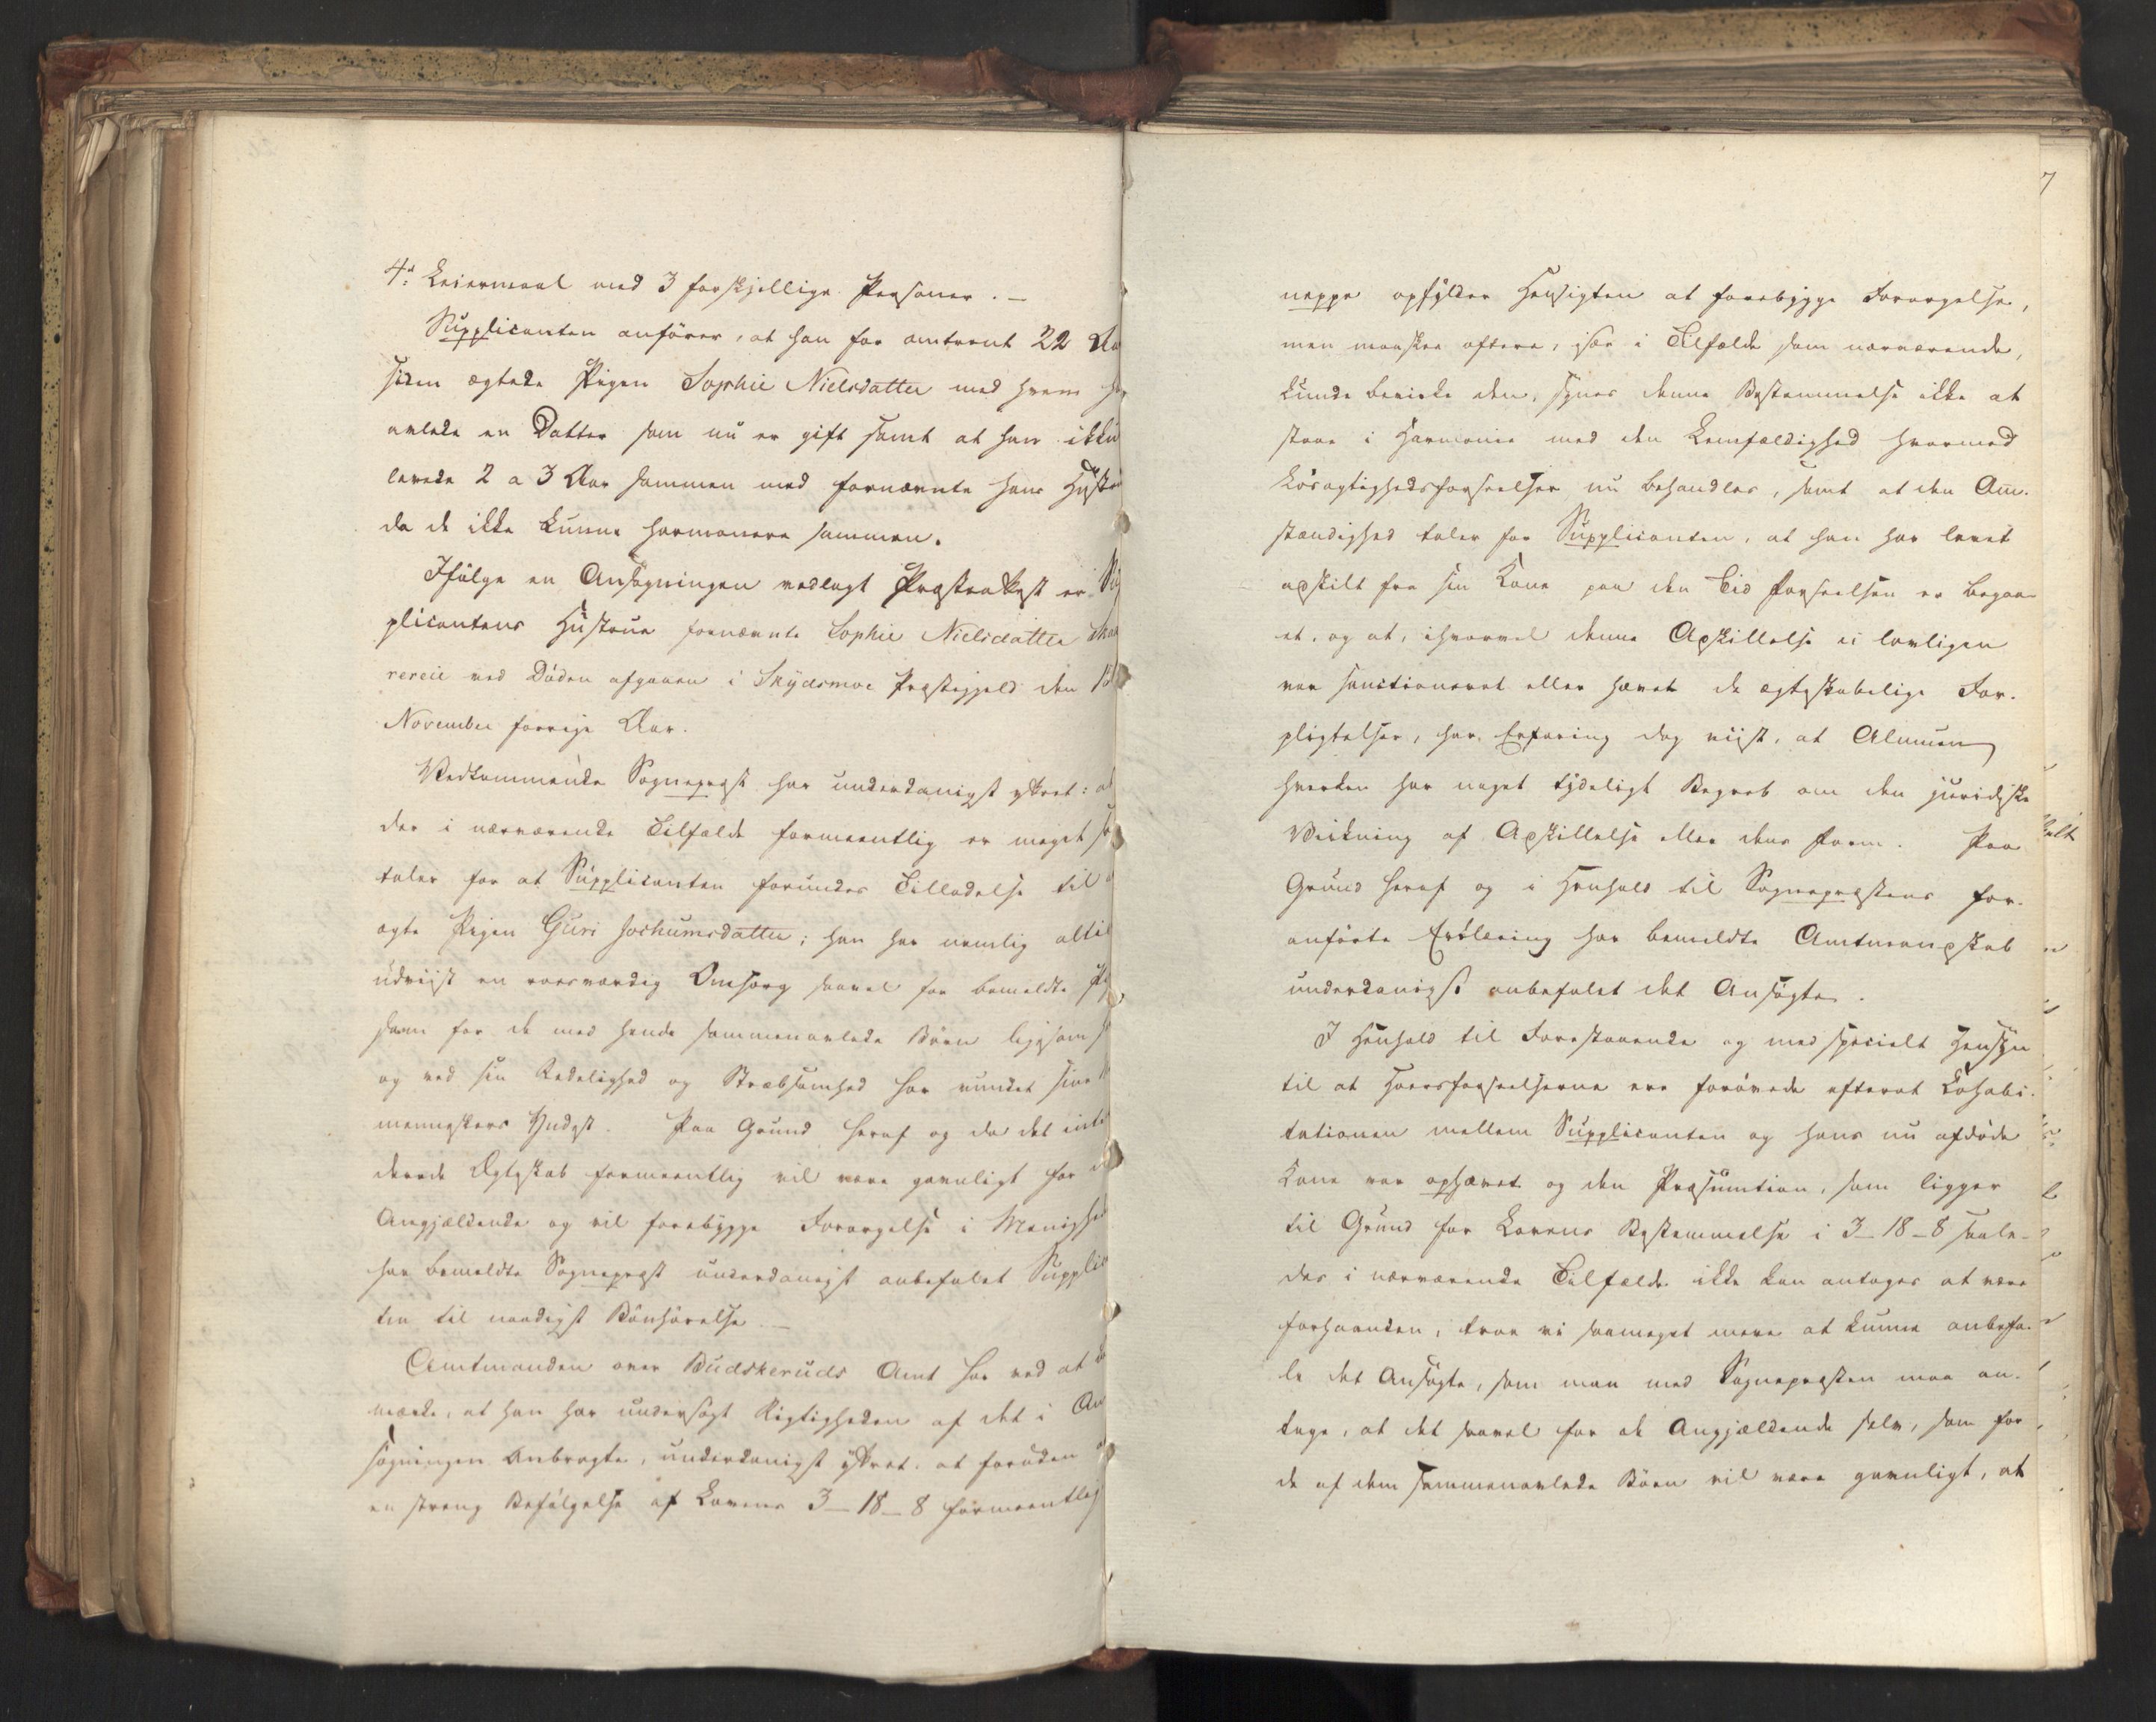 4de Leiermaal med 3 forskjellige Personer. –
Supplicanten anfører, at han for omtrent 22 Aa
siden ægtede Pigen Sophie Nielsdatter med hvem h
avlede en Datter som nu er gift samt at han ikku
levede 2 a 3 Aar sammen med fornævnte hans Hustr
da de ikke kunne harmonere sammen.
Ifølge en Ansøgningen vedlagt Præsteattest er Su
plicantens Hustrue fornævnte Sophie Nielsdatter
ved Døden afgaaen i Skydsmoe Præstegjeld den 18
November forrige Aar.
Vedkommende Sognepræst har underdanigst yttret: at
der i nærværende Tilfælde formeentlig er meget s
taler for at Supplicanten forundes Tilladelse til
ægte Pigen Guri Jochumsdatter; han har nemlig altid
udviist en roesværdig Omsorg saavel for bemeldte Pi
som for de med hende sammenavlede Børn ligesom h
og ved sin Redelighed og Stræbsomhed har vundet sine M
menneskers Yndest. Paa Grund heraf og da det inte
derede Ægteskab formeentlig vil være gavnligt for d
Angjældende og vil forebygge Forargelse i Menighed
har bemeldte Sognepræst underdanigst anbefalet Supplic
ten til naadigst Bønhørelse. –
Amtmanden over Budskeruds Amt har ved at be
mærke, at han har undersøgt Rigtigheden af det i An
søgningen Anbragte, underdanigst yttret, at foruden a
en streng Befølgelse af Lovens 3–18–8 formeentlig
7
neppe opfylder Hensigten at forebygge Forargelse,
men maaskee oftere, især i Tilfælde som nærværende,
kunde bevirke den, synes denne Bestemmelse ikke at
staae i Harmonie med den Lemfældighed hvormed
Løsagtighedsforseelser nu behandles, samt at den Om-
stændighed taler for Supplicanten, at han har levet
adskilt fra sin Kone paa den Tid Forseelsen er begaa-
et, og at, ihvorvel denne Adskillelse ei lovligen
var sanctioneret eller hævet de ægteskabelige For-
pligtelser, har Erfaring dog viist, at Almuen
hverken har noget tydeligt Begreb om den juridiske
Virkning af Adskillelse eller dens Form. Paa
Grund heraf og i Henhold til Sognepræstens for-
anførte Erklæring har bemeldte Amtmandskab
underdanigst anbefalet det Ansøgte.
I Henhold til Forestaaende og med specielt Hensyn
til at Hoersforseelserne ere forøvede efterat Cohabi-
tationen mellem Supplicanten og hans nu afdøde
Kone var ophævet og den Præsumtion, som ligger
til Grund for Lovens Bestemmelse i 3–18–8 saale-
des i nærværende Tilfælde ikke kan antages at være
forhaanden, troe vi saameget mere at kunne anbefa-
le det Ansøgte, som man med Sognepræsten maa an-
tage, at det saavel for de Angjældende selv, som for
de af dem sammenavlede Børn vil være gavnligt, at